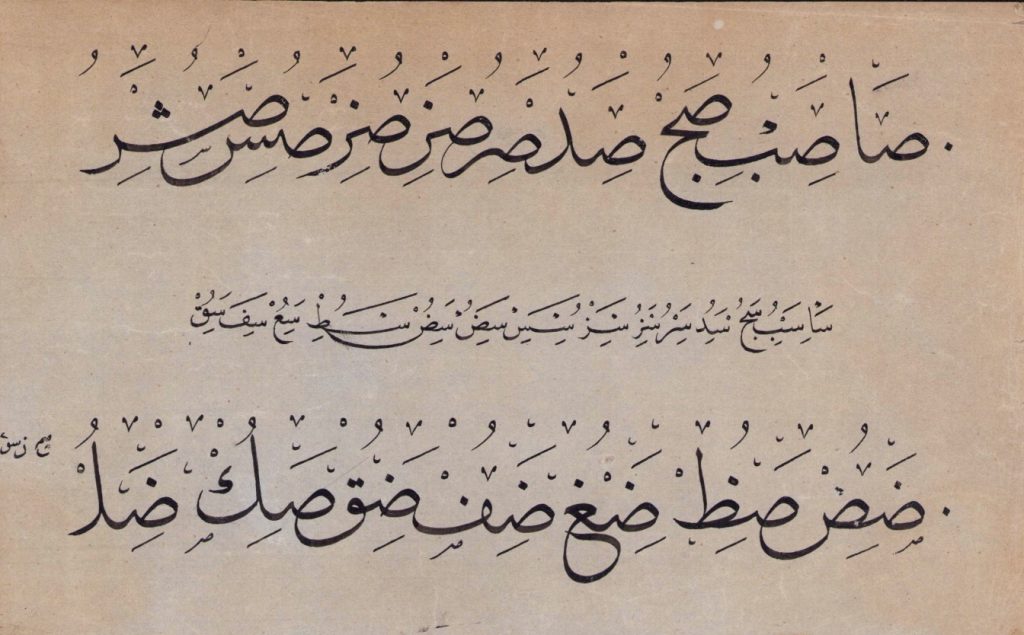 صا صب صج صد صر صز صز صس صشر
سا سب سج سد سر سز سز سس سض سض سط سع سف سق
ضض صظ ضغ ضف ضق صك ضل